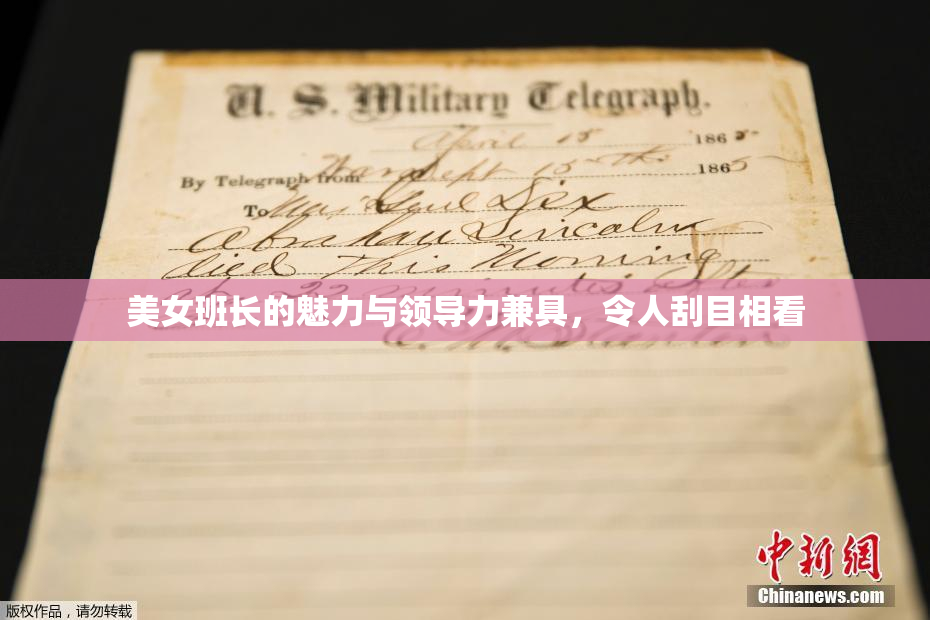 U. S. Military Telegraph.
April 15 1865
By Telegraph from War Dept 15th 1865
To Maj Genl Dix
Abraham Lincoln
died this Morning
22 minutes after
美女班长的魅力与领导力兼具，令人刮目相看
E. M. Stanton
中新网
Chinanews.com
版权作品，请勿转载